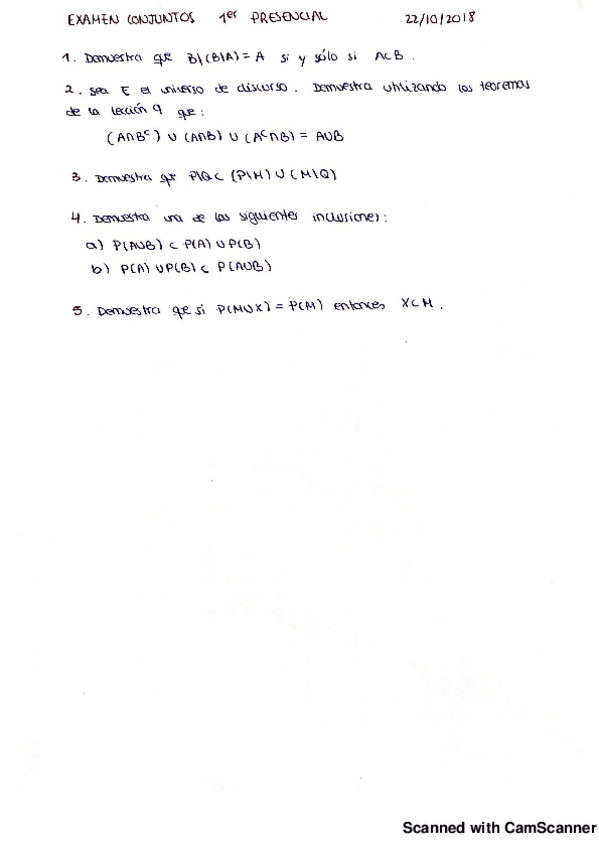 EXAMEN CONJUNTOS 1er PRESENCIAL 22/10/2018
1. Demuestra que B\(B\A) = A si y sólo si A⊂B.
2. Sea E el universo de discurso. Demuestra utilizando los teoremas
de la lección 9 que:
(A∩Bᶜ) ∪ (A∩B) ∪ (Aᶜ∩B) = A∪B
3. Demuestra que P\Q ⊂ (P\M) ∪ (M\Q)
4. Demuestra una de las siguientes inclusiones:
a) P(A∪B) ⊂ P(A) ∪ P(B)
b) P(A) ∪ P(B) ⊂ P(A∪B)
5. Demuestra que si P(M∪X) = P(M) entonces X⊂M.
Scanned with CamScanner